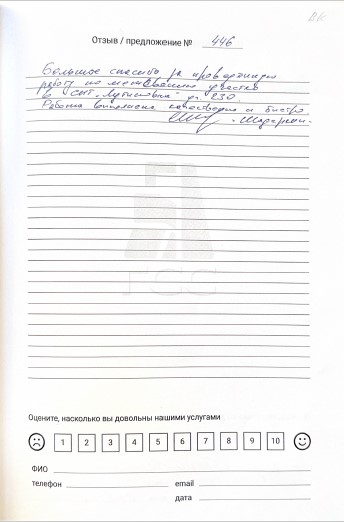 Отзыв / предложение № 446
Большое спасибо за
работу по участка
в СНТ уч. 230.
Работа выполнена качественно и быстро
ГСС
Оцените, насколько вы довольны нашими услугами
1 2 3 4 5 6 7 8 9 10
ФИО
телефон email
дата